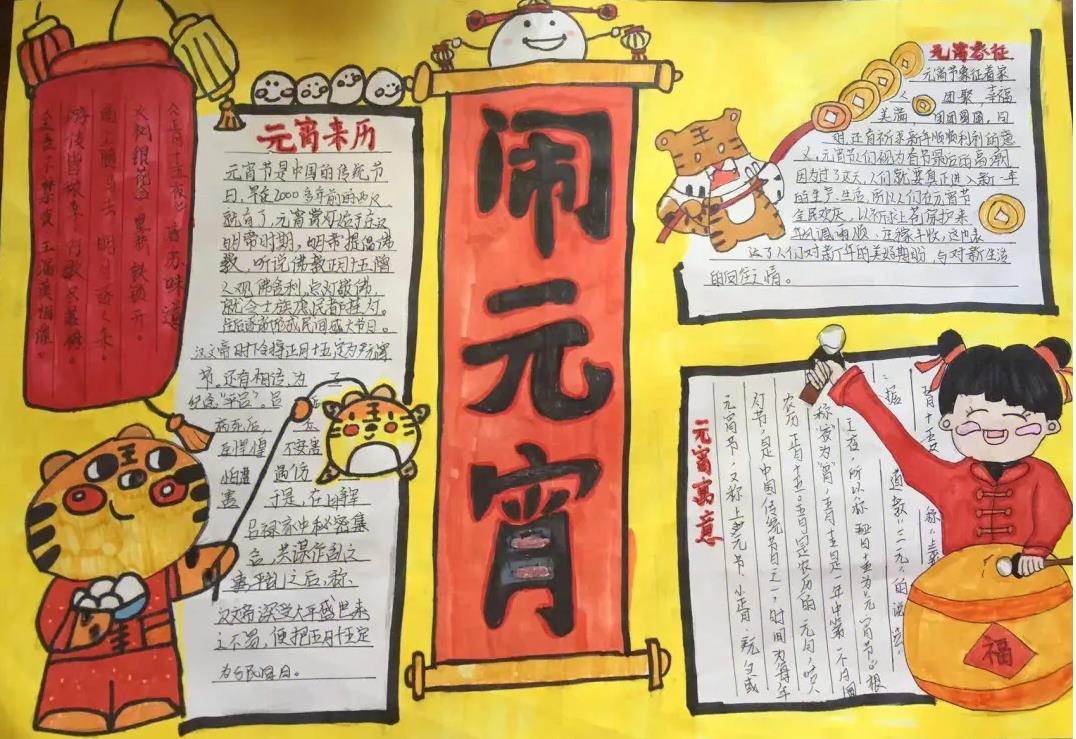 闹元宵
《正月十五夜》 苏味道
火树银花 星桥铁锁开。
暗尘 去 明月逐人来。
游伎皆 行歌尽落梅。
金吾不禁夜 玉漏莫相催。
元宵来历
元宵节是中国的传统节
日,早在2000多年前的西汉
就有了,元宵赏灯始于东汉
明帝时期,明帝提倡佛
教,听说佛教正月十五僧
人观佛舍利,点灯敬佛
就令士族庶民都挂灯。
往后逐渐形成民间盛大节日。
汉文帝时下令将正月十五定为元宵
节。还有相传,为
纪念“平吕”。吕
病死后,
害 于是,在
吕禄家中秘密集
合,共谋作乱之
事,平乱之后,
汉文帝深受太平盛世来
之不易,便把正月十五定
元宵象征
元宵节象征着家
人 团聚,幸福
美满 团团圆圆,同
时还有祈求新年顺顺利利的意
义,元宵节人们视为春节最后的高潮
因为过了这天,人们就要真正进入新一年
的生产、生活,所以人们在元宵节
全民欢庆,以祈求上苍保护来
年风调雨顺、庄稼丰收,这代表
达了人们对新年的美好期盼,与对新生活
的向往之情。
元宵寓意
元宵节,又称上元节、小正月、元夕或
灯节,是中国传统节日之一,时间为每年
农历正月十五。正月是农历的元月,古人
称夜为“宵”,正月十五是一年中第一个月圆
之夜,所以称正月十五为“元宵节”。根
据 道教“三元”的说法,
正月十五 称“上元
福